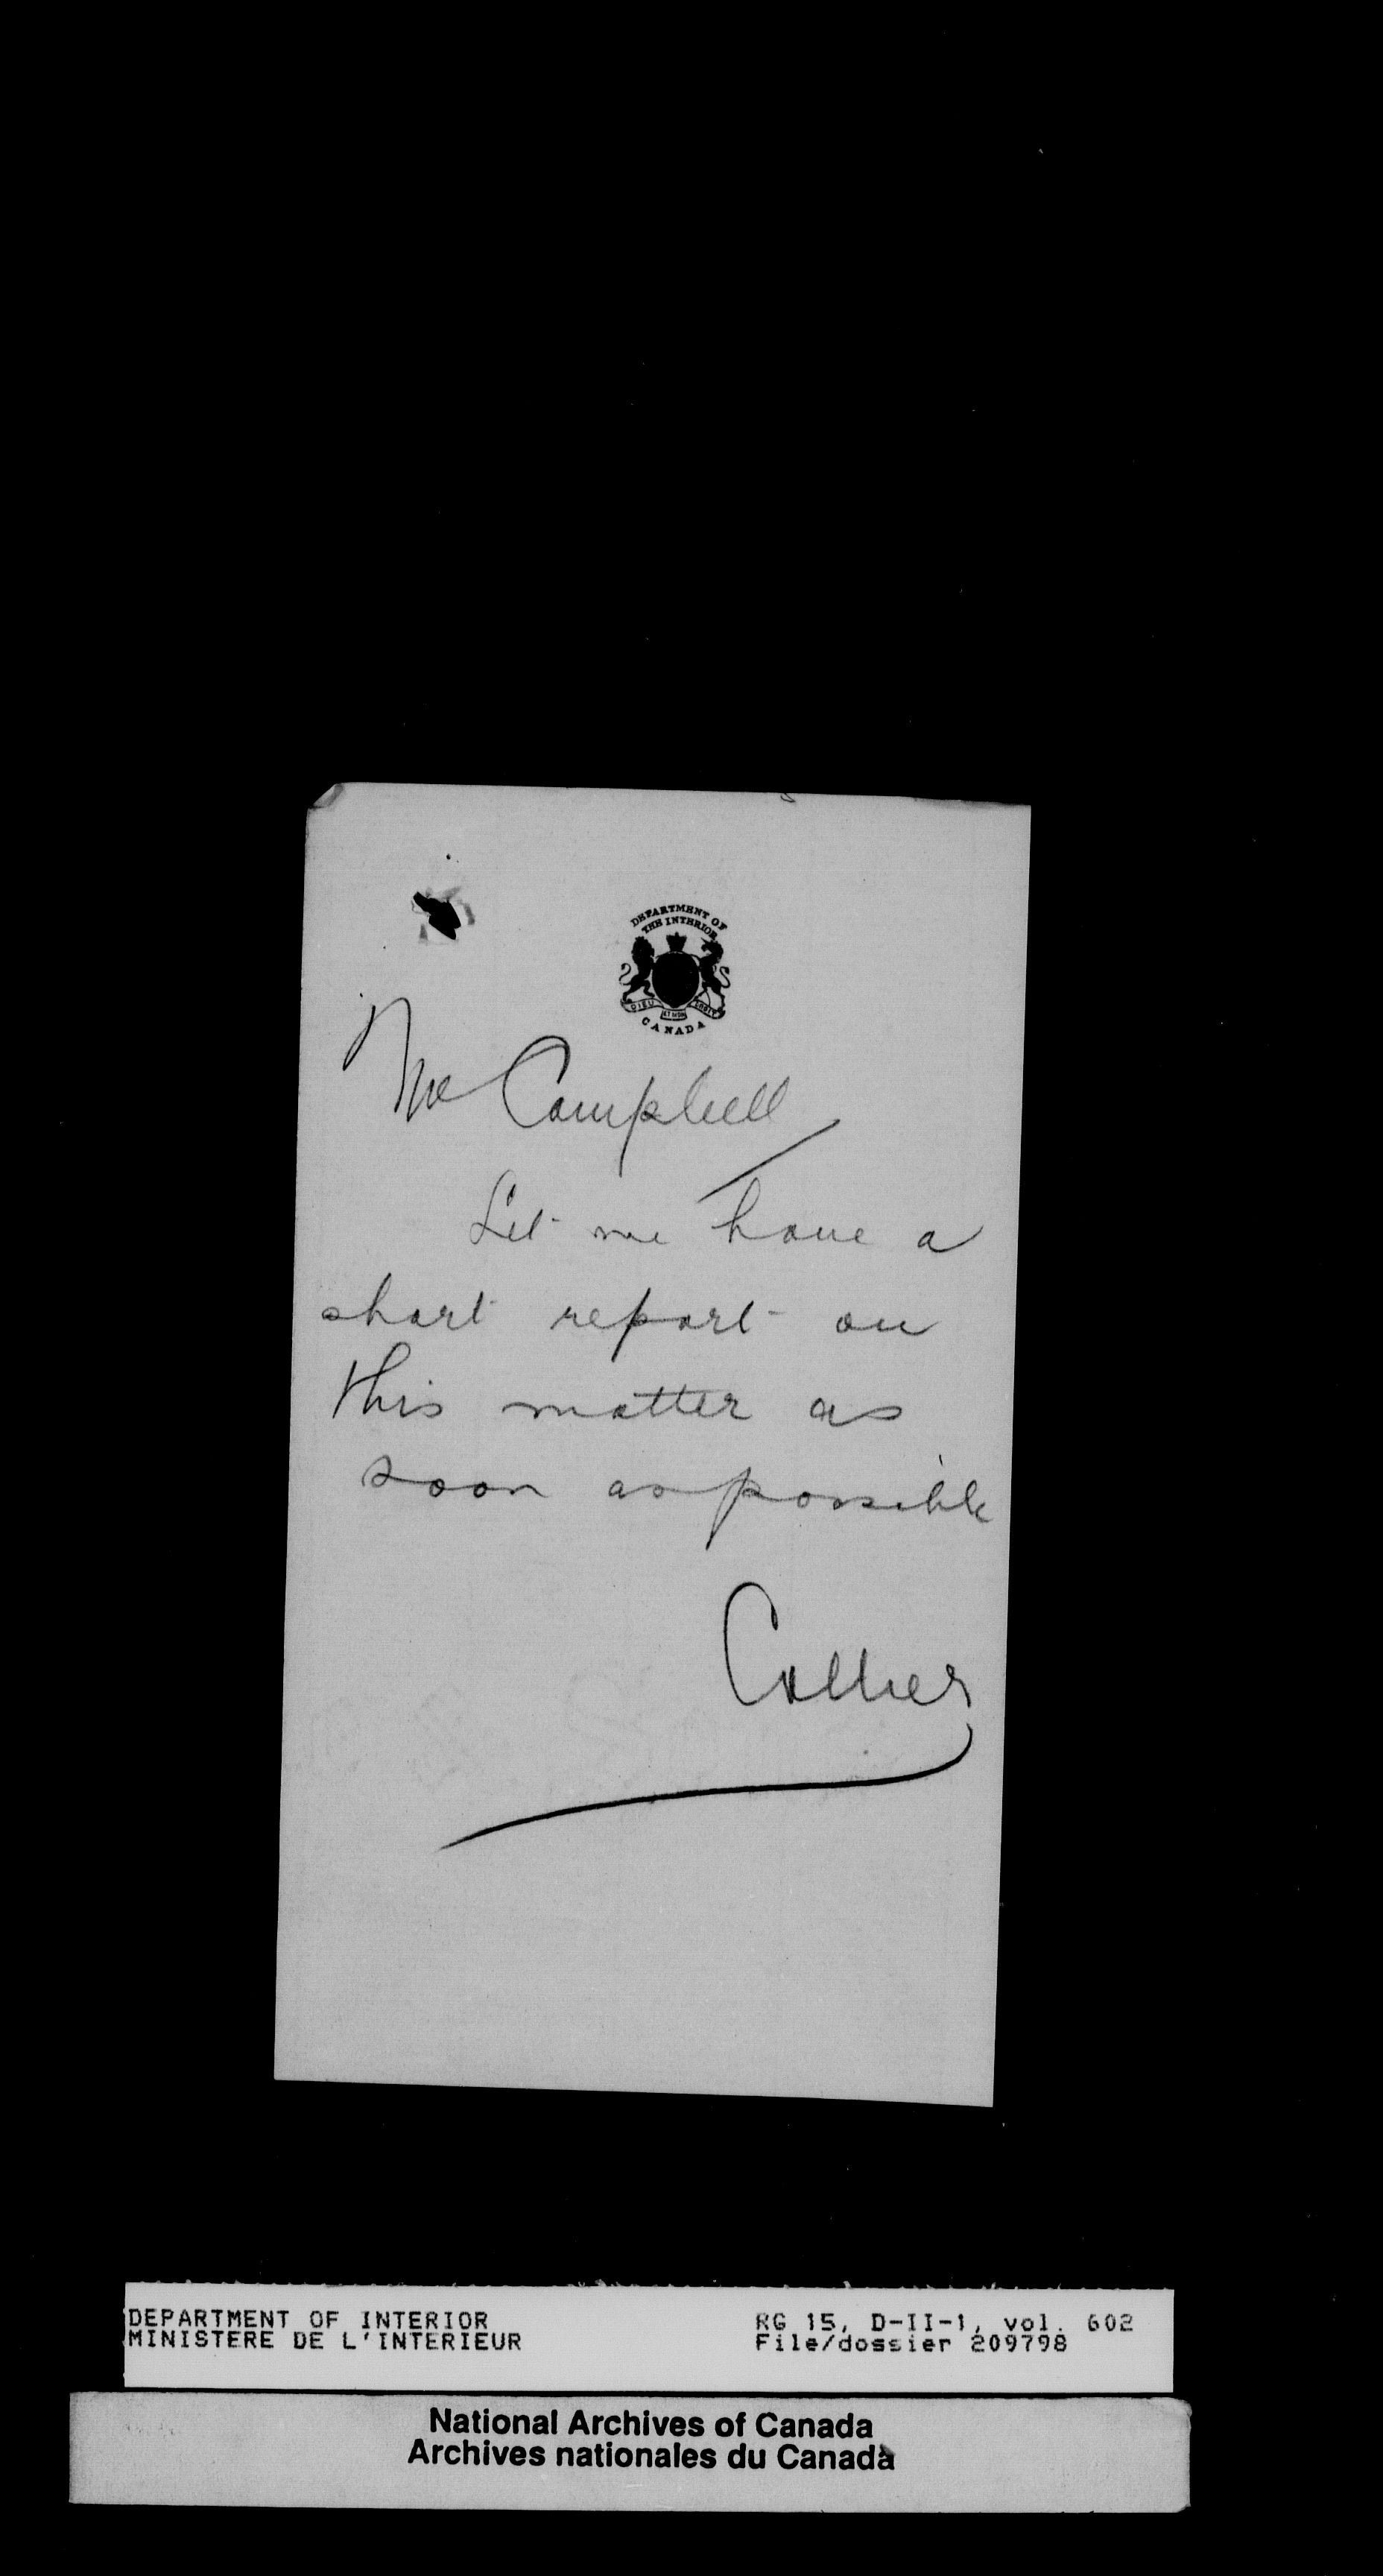 DEPARTMENT OF
THE INTERIOR
DIEU ET MON DROIT
CANADA
Mr Campbell
Let me have a
short report on
this matter as
soon as possible
Collier
DEPARTMENT OF INTERIOR
MINISTERE DE L'INTERIEUR
RG 15, D-II-1, vol. 602
File/dossier 209798
National Archives of Canada
Archives nationales du Canada